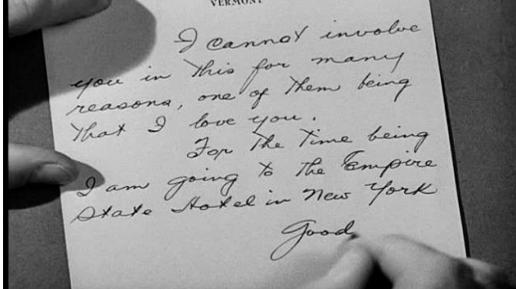 VERMONT
I cannot involve
you in this for many
reasons, one of them being
that I love you.
For the time being
I am going to the Empire
State Hotel in New York
Good